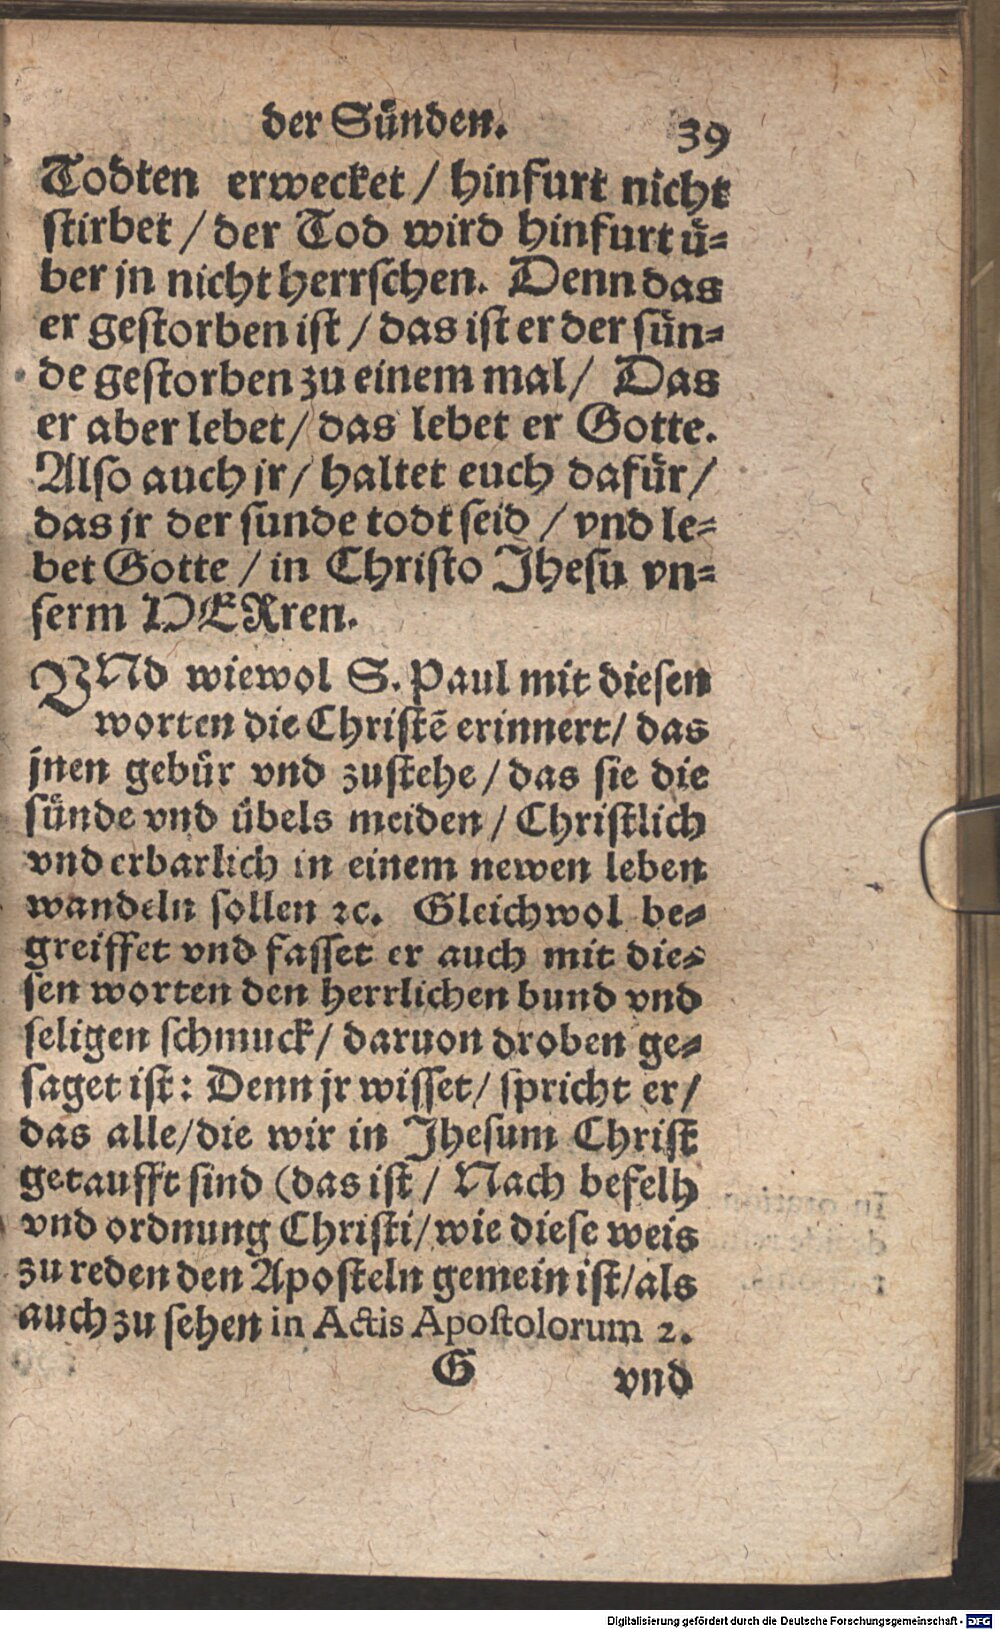 der Suͤnden. 39
Todten erwecket / hinfurt nicht
stirbet / der Tod wird hinfurt uͤ⸗
ber jn nicht herrſchen. Denn das
er geſtorben iſt / das iſt er der ſuͤn⸗
de geſtorben zu einem mal / Das
er aber lebet / das lebet er Gotte.
Alſo auch jr / haltet euch dafuͤr /
das jr der ſunde todt ſeid / vnd le⸗
bet Gotte / in Chriſto Jheſu vn⸗
ſerm HERren.
VNd wiewol S. Paul mit dieſen
worten die Chriſtē erinnert / das
jnen gebuͤr vnd zuſtehe / das ſie die
ſuͤnde vnd uͤbels meiden / Chriſtlich
vnd erbarlich in einem newen leben
wandeln ſollen ꝛc. Gleichwol be⸗
greiffet vnd faſſet er auch mit die⸗
ſen worten den herrlichen bund vnd
ſeligen ſchmuck / daruon droben ge⸗
ſaget iſt: Denn jr wiſſet / ſpricht er /
das alle / die wir in Jheſum Chriſt
getaufft ſind (das iſt / Nach befelh
vnd ordnung Chriſti / wie dieſe weis
zu reden den Apoſteln gemein iſt / als
auch zu ſehen in Actis Apoſtolorum 2.
G vnd
Digitalisierung gefördert durch die Deutsche Forschungsgemeinschaft - DFG